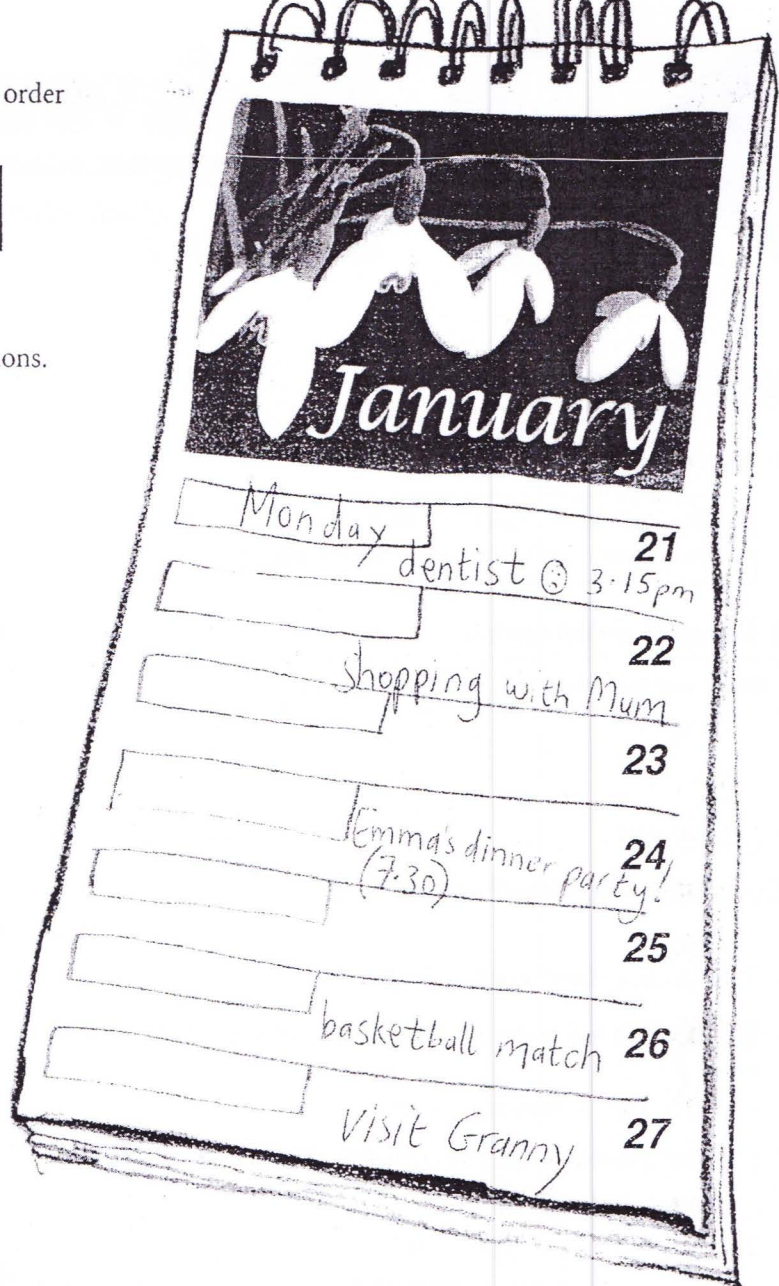 order
ons.
January
Monday 21
dentist 3·15pm
22
shopping with Mum
23
Emma's dinner 24
(7.30) party!
25
basketball match 26
Visit Granny 27